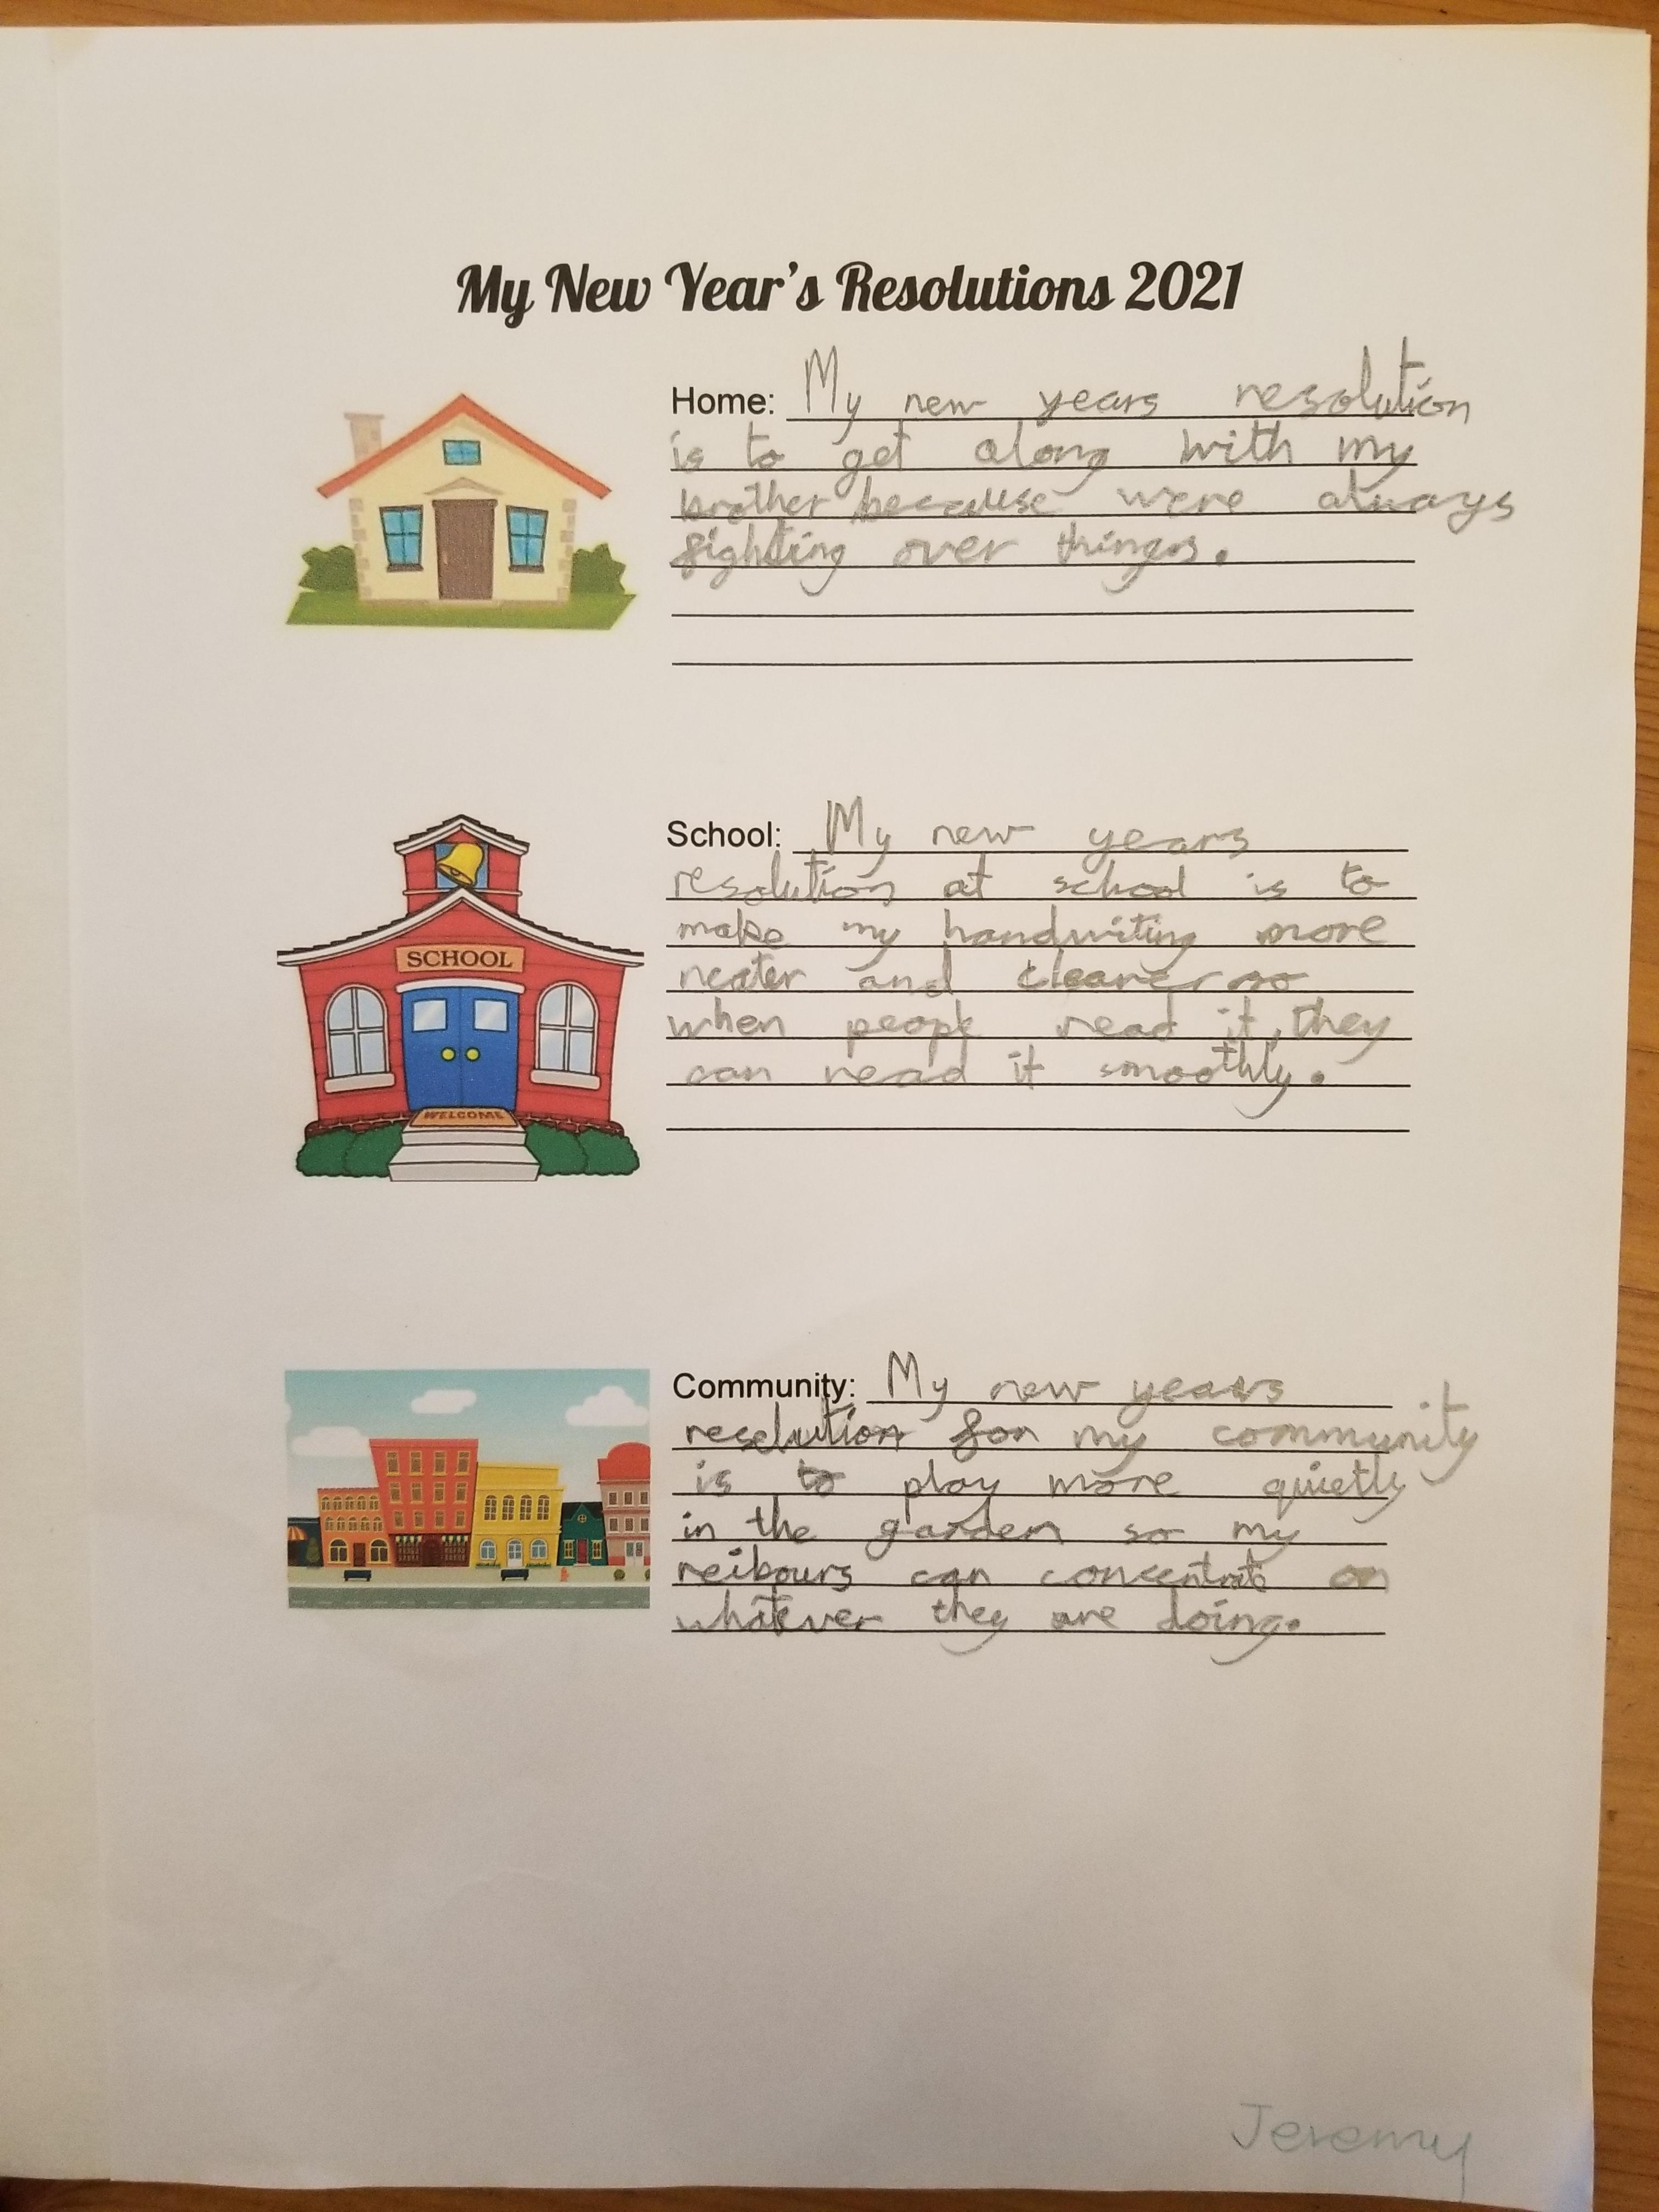 My New Year's Resolutions 2021
Home: My new years resolution
is to get along with my
brother because were always
fighting over things.
SCHOOL
WELCOME
School: My new years
resolution at school is to
make my handwriting more
neater and cleaner so
when people read it, they
can read it smoothly.
Community: My new years
resolution for my community
is to play more quietly
in the garden so my
neibours can concentrate on
whatever they are doing.
Jeremy